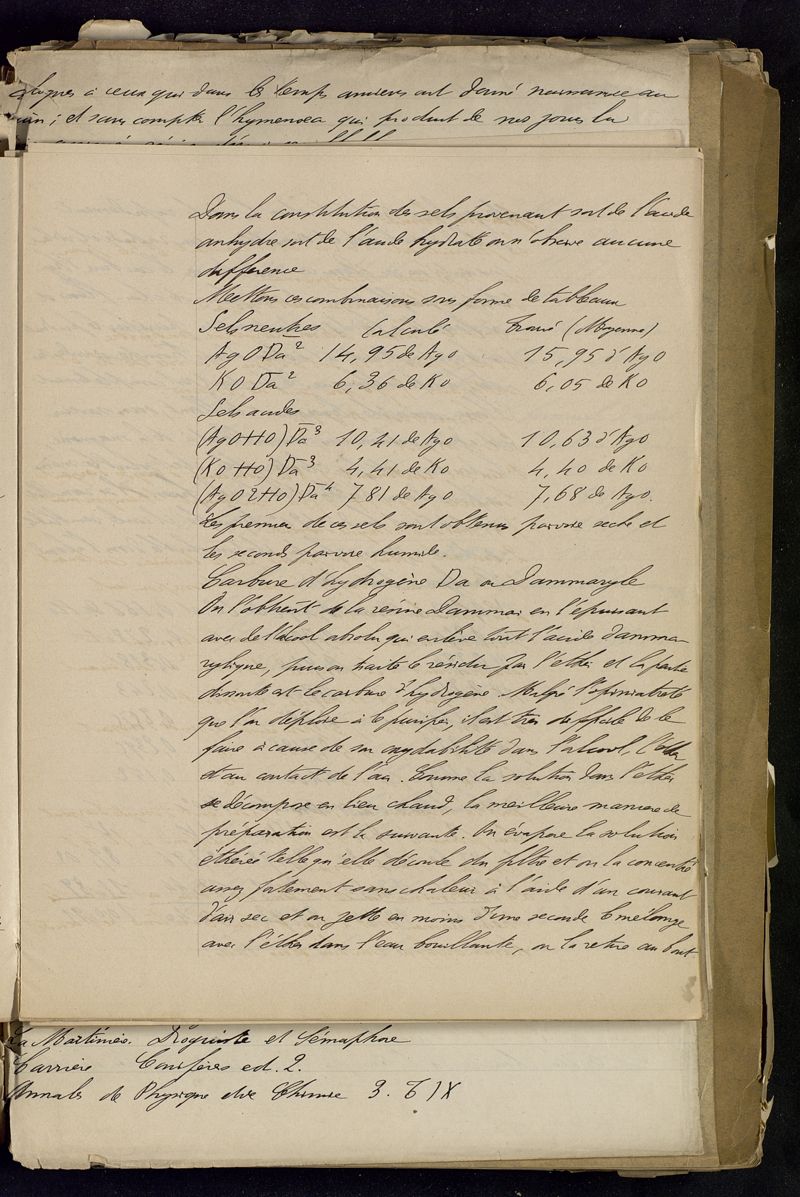 à ceux qui dans les temps anciens ont donné naissance au
; et sans compter l'hymenoea qui produit de nos jours la
Dans la constitution des sels provenant soit de l'acide
anhydre soit de l'acide hydraté on n'observe aucune
difference
Mettons ces combinaisons sous forme de tableaux
Sels neutres Calculé Trouvé (Moyenne)
AgO Da² 14,95 de AgO 15,95 d'AgO
KO Da² 6,36 de KO 6,05 de KO
Sels acides
(AgO HO) Da³ 10,41 de AgO 10,63 d'AgO
(KO HO) Da³ 4,41 de KO 4,40 de KO
(AgO 2HO) Da⁴ 7,81 de AgO 7,68 de AgO.
Les premiers de ces sels sont obtenus par voie seche et
les seconds par voie humide.
Carbure d'hydrogène Da ou Dammaryle
On l'obtient de la résine Dammar en l'épuisant
avec de l'alcool absolu qui enlève tout l'acide damma-
rylique, puis on traite le résidu par l'ether et la partie
dissoute est le carbure d'hydrogène. Malgré l'opiniatreté
que l'on déploie à le purifier, il est très difficile de le
faire à cause de son oxydabilité dans l'alcool, l'éther
et au contact de l'air. Comme la solution dans l'éther
se décompose en lieu chaud, la meilleure maniere de
préparation est la suivante. On évapore la solution
éthérée telle qu'elle découle du filtre et on la concentre
assez fortement sans chaleur à l'aide d'un courant
d'air sec et on jette en moins d'une seconde le mélange
avec l'éther dans l'eau bouillante, on la retire au bout
La Martinière. Droguiste et Sémaphore
Carrière Conifères ed. 2.
Annales de Physique et de Chimie 3. T IX